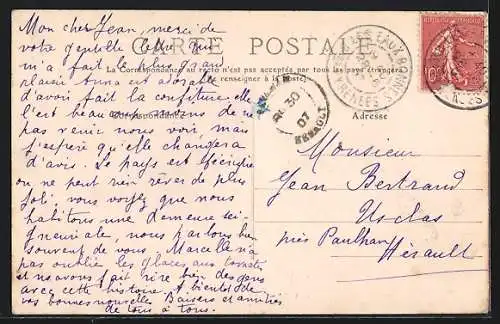 CARTE POSTALE
La Correspondance au recto n'est pas acceptée par tous les pays étrangers
(Se renseigner à la Poste)
Correspondance
Adresse
Mon cher Jean, merci de
votre gentille lettre qui
m'a fait le plus grand
plaisir Anna est
d'avoir fait la confiture elle
l'est beaucoup moins de ne
pas venir nous voir, mais
j'espère qu'elle changera
d'avis. Le pays est féerique
on ne peut rien rêver de plus
joli, vous voyez que nous
habitons une demeure sei-
gneuriale, nous parlons bien
souvent de vous. Marcelle n'a
pas oublié les glaces aux
et nous avons fait rire bien des gens
avec cette histoire. A bientôt de
vos bonnes nouvelles Baisers et amitiés
de tous à tous.
Monsieur
Jean Bertrand
Usclas
près Paulhan
Hérault
LES EAUX-BONNES
30
07
HERAULT
REPUBLIQUE FRANÇAISE
10